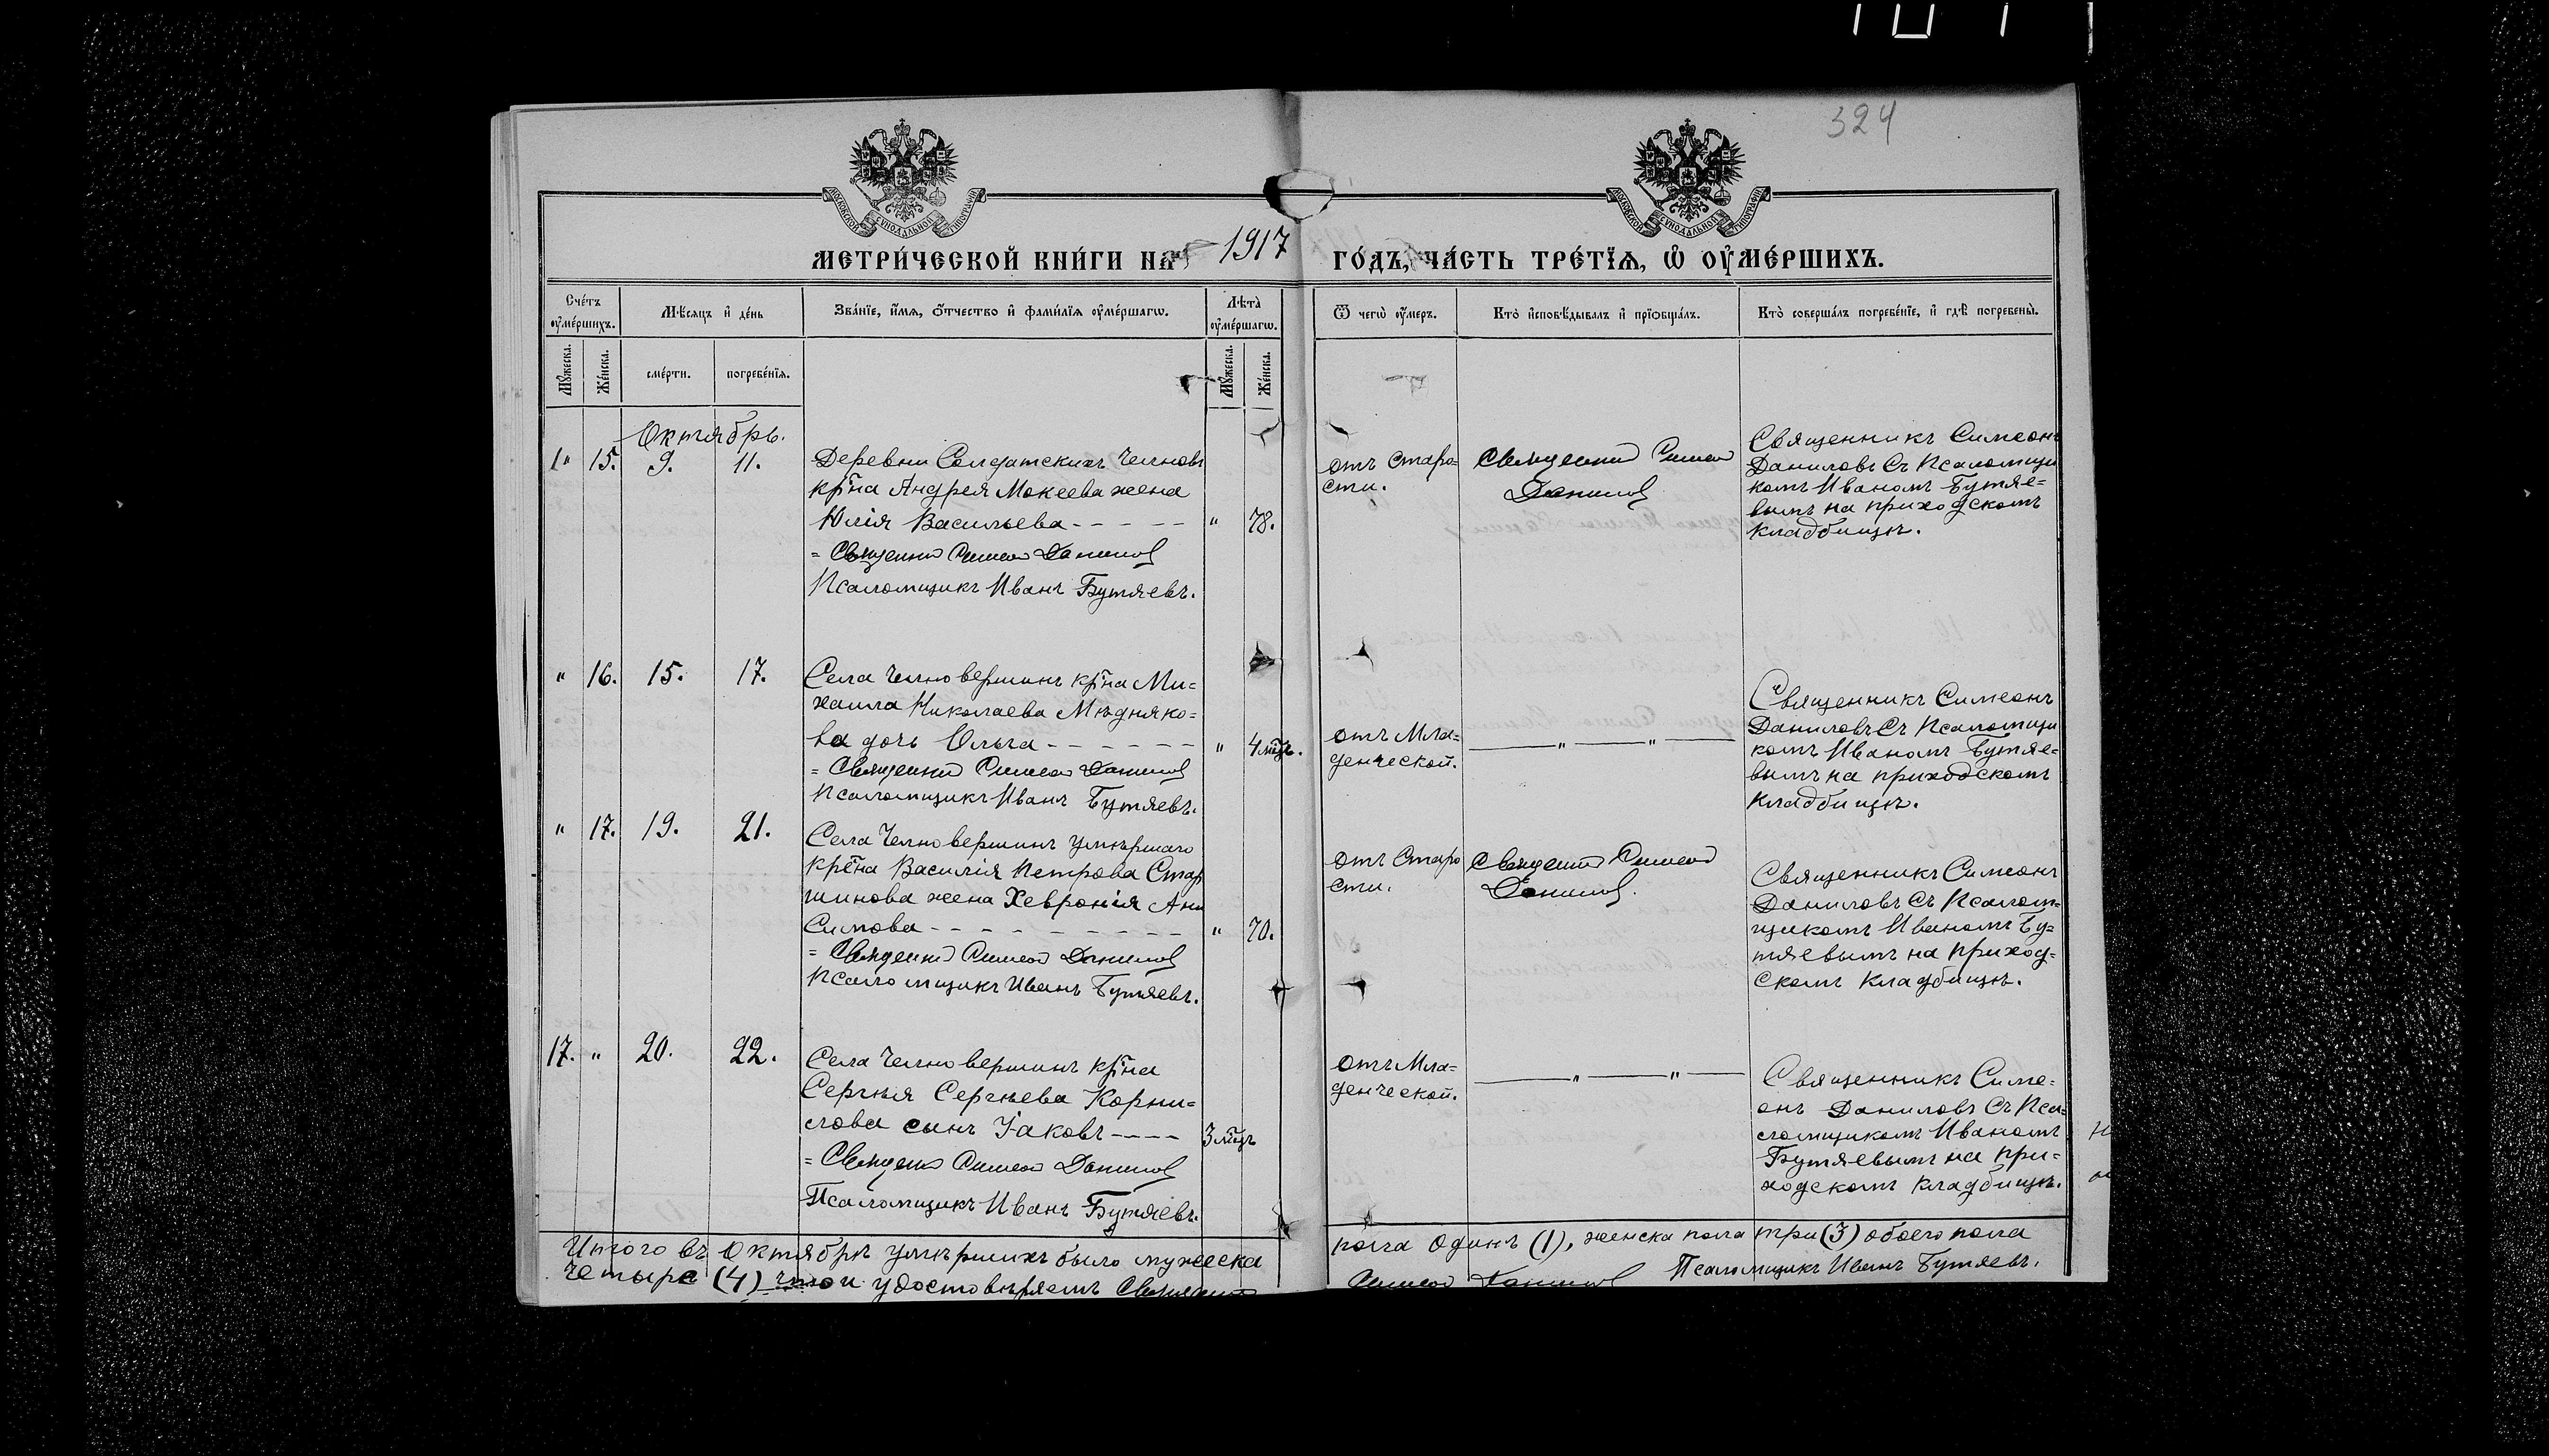 324
МЕТРИ́ЧЕСКОЙ КНИ́ГИ НА 1917 ГО́ДЪ, ЧА́СТЬ ТРЕ́ТІѦ, Ѡ҆ ОУ҆МЕ́РШИХЪ.
Сче́тъ оу҆ме́ршихъ.
Мѣ́сяцъ и҆ де́нь
Зва́нїе, и҆́мѧ, ѻ҆́тчество и҆ фами́лїѧ оу҆ме́ршагѡ.
Лѣ́та̀ оу҆ме́ршагѡ.
Ѿ чегѡ̀ оу҆́меръ.
Кто̀ и҆сповѣ́дывалъ и҆ прїѡбща́лъ.
Кто̀ соверша́лъ погребе́нїе, и҆ гдѣ̀ погребены̀.
Мꙋ́жеска.
Же́нска.
сме́рти.
погребе́нїѧ.
Мꙋ́жеска.
Же́нска.
Октябрь.
15. 9. 11.
Деревни Солдатскихъ Челновъ
кр̃на Андрея Мокеева жена
Юлія Васильева - - - - - " 78.
= Священникъ Симеонъ Даниловъ
Псаломщикъ Иванъ Бутяевъ.
отъ старо=
сти.
Священникъ Симеонъ
Даниловъ
Священникъ Симеонъ
Даниловъ съ псаломщи
комъ Иваномъ Бутяе=
вымъ на приходскомъ
кладбищѣ.
" 16. 15. 17.
Села Челновершинъ кр̃на Ми=
хаила Николаева Мѣдняко=
ва дочь Ольга - - - - - - " 4 мц̃ъ.
= Священникъ Симеонъ Даниловъ
Псаломщикъ Иванъ Бутяевъ.
отъ Мла=
денческой.
— " — " —
Священникъ Симеонъ
Даниловъ съ псаломщи
комъ Иваномъ Бутяе=
вымъ на приходскомъ
кладбищѣ.
" 17. 19. 21.
Села Челновершинъ умѣршаго
кр̃на Василія Петрова Стар
шинова жена Хевронія Ани
симова - - - - - - - - - " 70.
= Священникъ Симеонъ Даниловъ
Псаломщикъ Иванъ Бутяевъ.
отъ Старо
сти.
Священникъ Симеонъ
Даниловъ.
Священникъ Симеонъ
Даниловъ съ псалом=
щикомъ Иваномъ Бу=
тяевымъ на приход=
скомъ кладбищѣ.
17. " 20. 22.
Села Челновершинъ кр̃на
Сергѣя Сергѣева Корни=
лова сынъ Іаковъ - - - - 3 мц̃ъ
= Священникъ Симеонъ Даниловъ
Псаломщикъ Иванъ Бутяевъ.
отъ Мла=
денческой.
— " — " —
Священникъ Симе=
онъ Даниловъ съ пса=
ломщикомъ Иваномъ
Бутяевымъ на при=
ходскомъ кладбищѣ.
Итого въ Октябрѣ умѣршихъ было мужеска пола одинъ (1), женска пола три (3) обоего пола
четыре (4) что и удостовѣряемъ Священникъ Симеонъ Даниловъ Псаломщикъ Иванъ Бутяевъ.